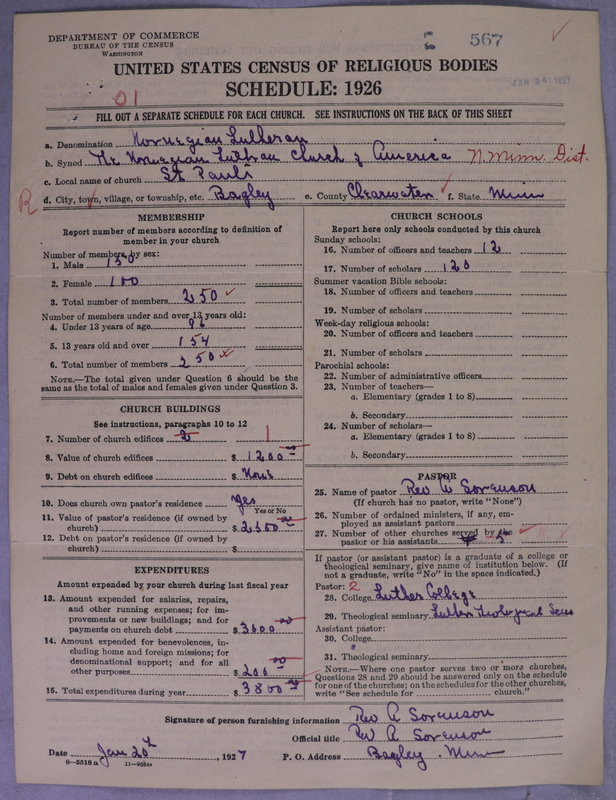 DEPARTMENT OF COMMERCE
BUREAU OF THE CENSUS
WASHINGTON
567
JAN 24 1927
UNITED STATES CENSUS OF RELIGIOUS BODIES
SCHEDULE: 1926
01
FILL OUT A SEPARATE SCHEDULE FOR EACH CHURCH. SEE INSTRUCTIONS ON THE BACK OF THIS SHEET
a. Denomination Norwegian Lutheran
b. Synod The Norwegian Luthran Church of America N. Minn. Dist.
c. Local name of church St Pauls
R d. City, town, village, or township, etc. Bagley e. County Clearwater f. State Minn
MEMBERSHIP
Report number of members according to definition of
member in your church
Number of members, by sex:
1. Male 150
2. Female 100
3. Total number of members 250
Number of members under and over 13 years old:
4. Under 13 years of age 96
5. 13 years old and over 154
6. Total number of members 250
NOTE.—The total given under Question 6 should be the
same as the total of males and females given under Question 3.
CHURCH BUILDINGS
See instructions, paragraphs 10 to 12
7. Number of church edifices 2 1
8. Value of church edifices $ 1200
9. Debt on church edifices $ None
10. Does church own pastor's residence Yes
Yes or No
11. Value of pastor's residence (if owned by
church) $ 2500
12. Debt on pastor's residence (if owned by
church) $
EXPENDITURES
Amount expended by your church during last fiscal year
13. Amount expended for salaries, repairs,
and other running expenses; for im-
provements or new buildings; and for
payments on church debt $ 3600
14. Amount expended for benevolences, in-
cluding home and foreign missions; for
denominational support; and for all
other purposes $ 200
15. Total expenditures during year $ 3800
CHURCH SCHOOLS
Report here only schools conducted by this church
Sunday schools:
16. Number of officers and teachers 12
17. Number of scholars 120
Summer vacation Bible schools:
18. Number of officers and teachers
19. Number of scholars
Week-day religious schools:
20. Number of officers and teachers
21. Number of scholars
Parochial schools:
22. Number of administrative officers
23. Number of teachers—
a. Elementary (grades 1 to 8)
b. Secondary
24. Number of scholars—
a. Elementary (grades 1 to 8)
b. Secondary
PASTOR
25. Name of pastor Rev A Sorenson
(If church has no pastor, write "None")
26. Number of ordained ministers, if any, em-
ployed as assistant pastors
27. Number of other churches served by the
pastor or his assistants 5
If pastor (or assistant pastor) is a graduate of a college or
theological seminary, give name of institution below. (If
not a graduate, write "No" in the space indicated.)
Pastor: 2
28. College Luther College
29. Theological seminary Luther Theological Sem
Assistant pastor:
30. College
31. Theological seminary
NOTE.—Where one pastor serves two or more churches,
Questions 28 and 29 should be answered only on the schedule
for one of the churches; on the schedules for the other churches,
write "See schedule for church."
Signature of person furnishing information Rev A Sorenson
Official title Rev A Sorenson
Date Jan 20th, 1927 P. O. Address Bagley. Minn
8—5518a 11—9034